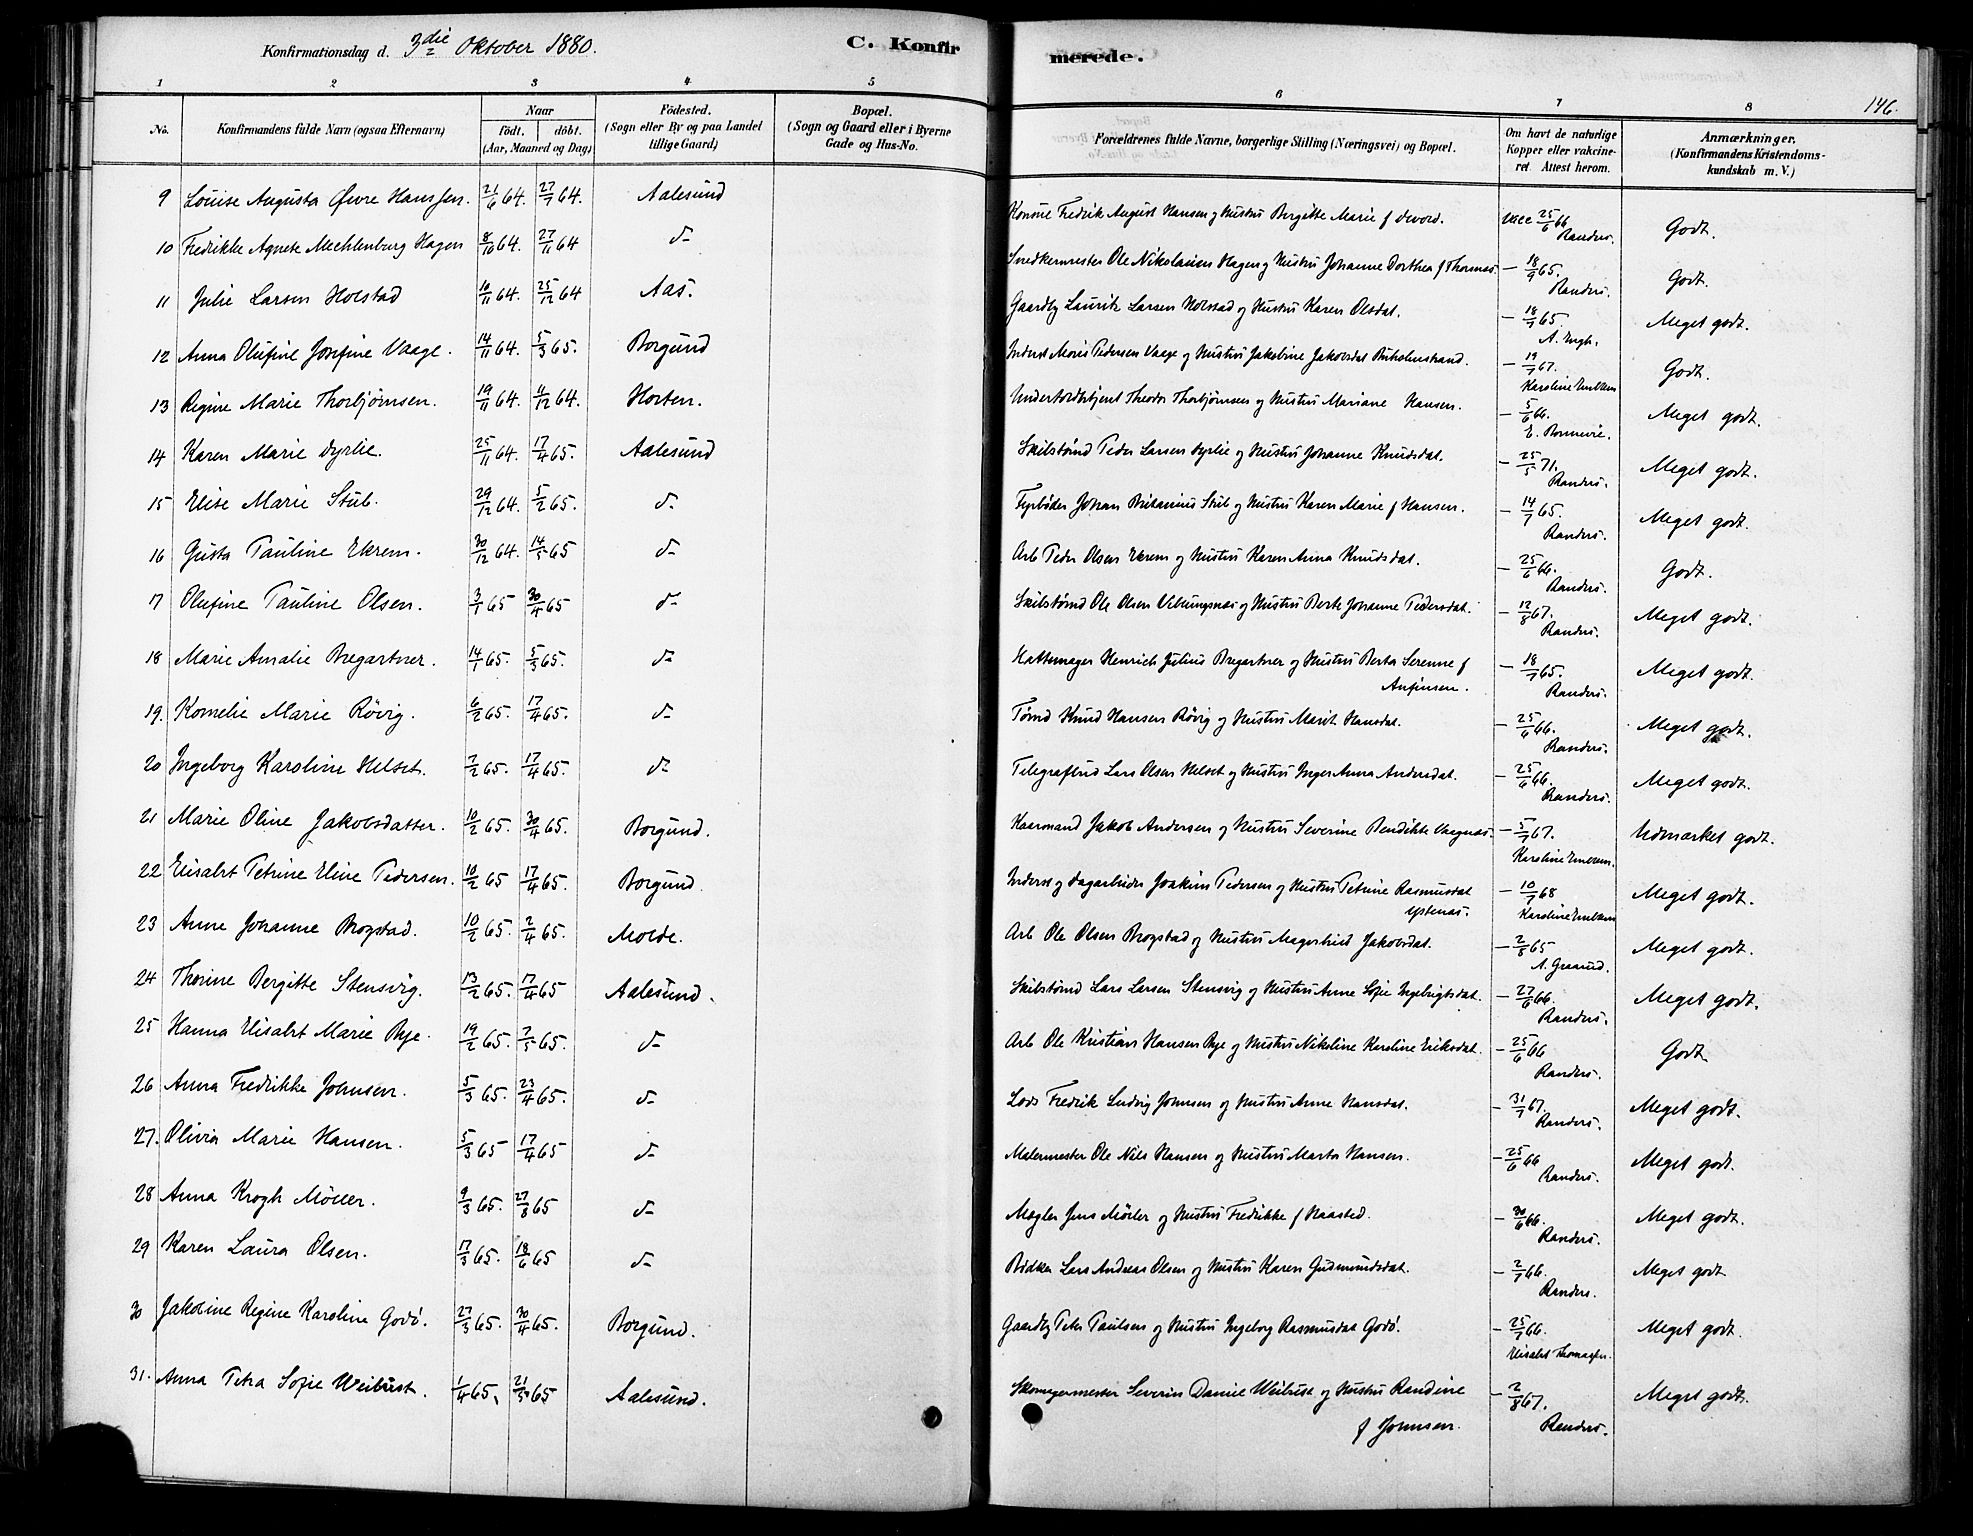 Konfirmationsdag d. 3die Oktober 1880.
C. Konfir
merede.
146.
1 2 3 4 5 6 7 8
No.
Konfirmandens fulde Navn (ogsaa Efternavn)
Naar
födt. döbt.
(Aar, Maaned og Dag)
Födested.
(Sogn eller By og paa Landet
tillige Gaard)
Bopæl.
(Sogn og Gaard eller i Byerne
Gade og Hus-No.
Forældrenes fulde Navne, borgerlige Stilling (Næringsvei) og Bopæl.
Om havt de naturlige
Kopper eller vakcine-
ret. Attest herom.
Anmærkninger.
(Konfirmandens Kristendoms-
kundskab m. V.)
9 Louise Augusta Øwre Hanssen. 21/6 64. 27/7 64. Aalesund Konsul Fredrik August Hansen og Hustru Bergitte Marie f. vacc 25/6 66 Randers. Godt.
10 Fredrikke Agnete Mechlenburg Hagen 8/10 64. 27/11 64 d- Snedkermester Ole Nikolaisen Hagen og Hustru Johanne Dorthea f Thormas. - 18/9 65. Randers. Godt.
11 Julie Larsen Holstad 10/11 64. 25/12 64 Aas. Gaardbr Laurits Larsen Holstad og Hustru Karen Olsdat. - 18/7 65. Meget godt.
12 Anna Olufine Josefine Vaage. 14/11 64. 5/3 65. Borgund Inderst Mons Pedersen Vaage og Hustru Jakobine Jakobsdat - 19/7 67. Karoline Emblem Godt.
13 Regine Marie Thorbjørnsen. 19/11 64. 4/12 64. Horten. Theodor Thorbjørnsen og Hustru Mariane Hansen. - 5/6 66. E. Bonnevie. Meget godt.
14 Karen Marie Dyrlie. 25/11 64. 17/4 65. Aalesund Skibstømd Peder Larsen Dyrlie og Hustru Johanne Knudsdat. - 25/5 71. Randers. Meget godt.
15 Elise Marie Stub. 29/12 64. 5/2 65. d- Fyrbøder Johan Stub og Hustru Karen Marie f Hansen. - 14/7 65. Randers. Meget godt.
16 Gusta Pauline Ekrem. 30/12 64. 14/5 65 d- Arb Peder Olsen Ekrem og Hustru Karen Anna Knudsdat. - 25/6 66. Randers. Godt.
17 Olufine Pauline Olsen. 3/1 65 30/4 65 d- Skibstømd Ole Olsen og Hustru Berte Johanne Pedersdat. - 12/8 67. Randers. Meget godt.
18 Marie Amalie Bregartner. 14/1 65. 5/3 65. d- Hattemager Henrich Julius Bregartner og Hustru Berta Serenne f
Anfinsen. - 18/7 65. Randers. Meget godt.
19. Kornelie Marie Røvig. 6/2 65. 17/4 65. d- Tømd Knud Hansen Røvig og Hustru Marit Hansdat. - 25/6 66. Randers. Meget godt.
20 Ingeborg Karoline Helset. 7/2 65. 17/4 65. d- Telegrafbud Lars Olsen Helset og Hustru Inger Anna Andersdat. - 25/6 66. Randers. Meget godt.
21 Marie Oline Jakobsdatter. 10/2 65. 30/4 65. Borgund. Huusmand Jakob Andersen og Hustru Severine Bendikte - 5/7 67. Karoline Emblem. Udmærket godt.
22 Elisabt Petrine Eline Pedersen. 10/2 65 17/4 65. Borgund. Inderst og dagarbeider Joakim Pedersen og Hustru Petrine Rasmusdat
- 10/7 68 Karoline Emblem Meget godt.
23 Anne Johanne Brogstad. 10/2 65. 2/4 65. Molde. Arb Ole Olsen Brogstad og Hustru Jakobsdat. - 2/8 65 Meget godt.
24 Thorine Bergitte Stensvig. 13/2 65. 17/4 65 Aalesund. Skibstømd Lars Larsen Stensvig og Hustru Anne Sofie Ingebrigtsdat. - 27/6 66. Randers. Meget godt.
25 Hanna Elisabt Marie Bye. 19/2 65. 7/5 65. d- Arb Ole Kristian Hansen Bye og Hustru Nikoline Karoline Eriksdat. - 25/6 66 Randers. Godt
26 Anna Fredrikke Johnsen. 5/3 65. 23/4 65. d- Lods Fredrik Ludvig Johnsen og Hustru Anne Hansdat. - 31/7 67. Randers. Meget godt.
27. Olivia Marie Hansen. 5/3 65 17/4 65 d- Malermester Ole Nils Hansen og Hustru Marta Hansen. - 25/6 66 Randers. Meget godt.
28 Anna Krogh Möller. 9/3 65. 27/8 65 d- Mægler Jens Möller og Hustru Fredrikke f Naasted. - 30/6 66. Randers. Meget godt.
29 Karen Laura Olsen. 17/3 65. 18/6 65 d- Bödker Lars Andreas Olsen og Hustru Karen Gudmundsdat. - 2/7 66. Randers. Meget godt
30 Jakobine Regine Karoline Godö. 27/3 65. 30/4 65. Borgund. Gaardbr Peter Paulsen og Hustru Ingeborg Rasmusdat Godö. - 25/7 66. Elisabt Meget godt.
31. Anna Petra Sofie Weibust. 1/4 65. 21/5 65 Aalesund. Skomagermester Severin Daniel Weibust og Hustru Randine
f Johnsen. - 2/8 67. Randers. Meget godt.